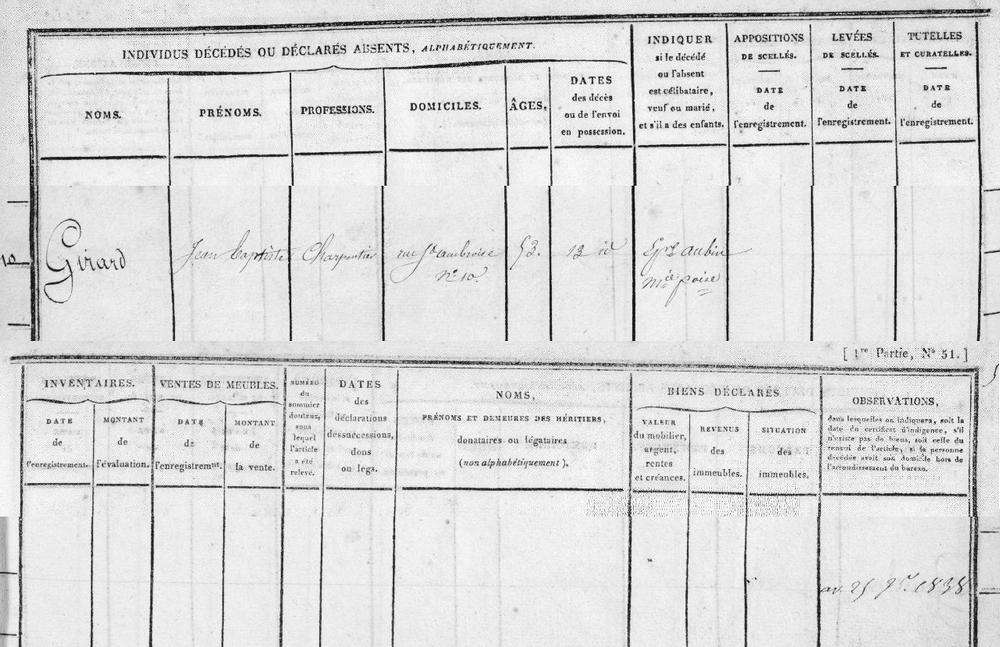 INDIVIDUS DÉCÉDÉS OU DÉCLARÉS ABSENTS, ALPHABÉTIQUEMENT.
NOMS.
PRÉNOMS.
PROFESSIONS.
DOMICILES.
ÂGES,
DATES
des décès
ou de l'envoi
en possession.
INDIQUER
si le décédé
ou l'absent
est célibataire,
veuf ou marié,
et s'il a des enfants.
APPOSITIONS
DE SCELLÉS.
DATE
de
l'enregistrement.
LEVÉES
DE SCELLÉS.
DATE
de
l'enregistrement.
TUTELLES
ET CURATELLES.
DATE
de
l'enregistrement.
Girard
Jean Baptiste
Charpentier
rue St ambroise
n° 10.
53.
13 id
aubin
[ 1re Partie, N° 51. ]
INVENTAIRES.
DATE
de
l'enregistrement.
MONTANT
de
l'évaluation.
VENTES DE MEUBLES.
DATE
de
l'enregistremnt.
MONTANT
de
la vente.
NUMÉRO
du
sommier
douteux,
sous
lequel
l'article
a été
relevé.
DATES
des
déclarations
des successions,
dons
ou legs.
NOMS,
PRÉNOMS ET DEMEURES DES HÉRITIERS,
donataires ou légataires
(non alphabétiquement).
BIENS DÉCLARÉS
VALEUR
du mobilier,
argent,
rentes
et créances.
REVENUS
des
immeubles.
SITUATION
des
immeubles.
OBSERVATIONS,
dans lesquelles on indiquera, soit la
date du certificat d'indigence, s'il
n'existe pas de biens, soit celle du
renvoi de l'article, si la personne
décédée avait son domicile hors de
l'arrondissement du bureau.
1838